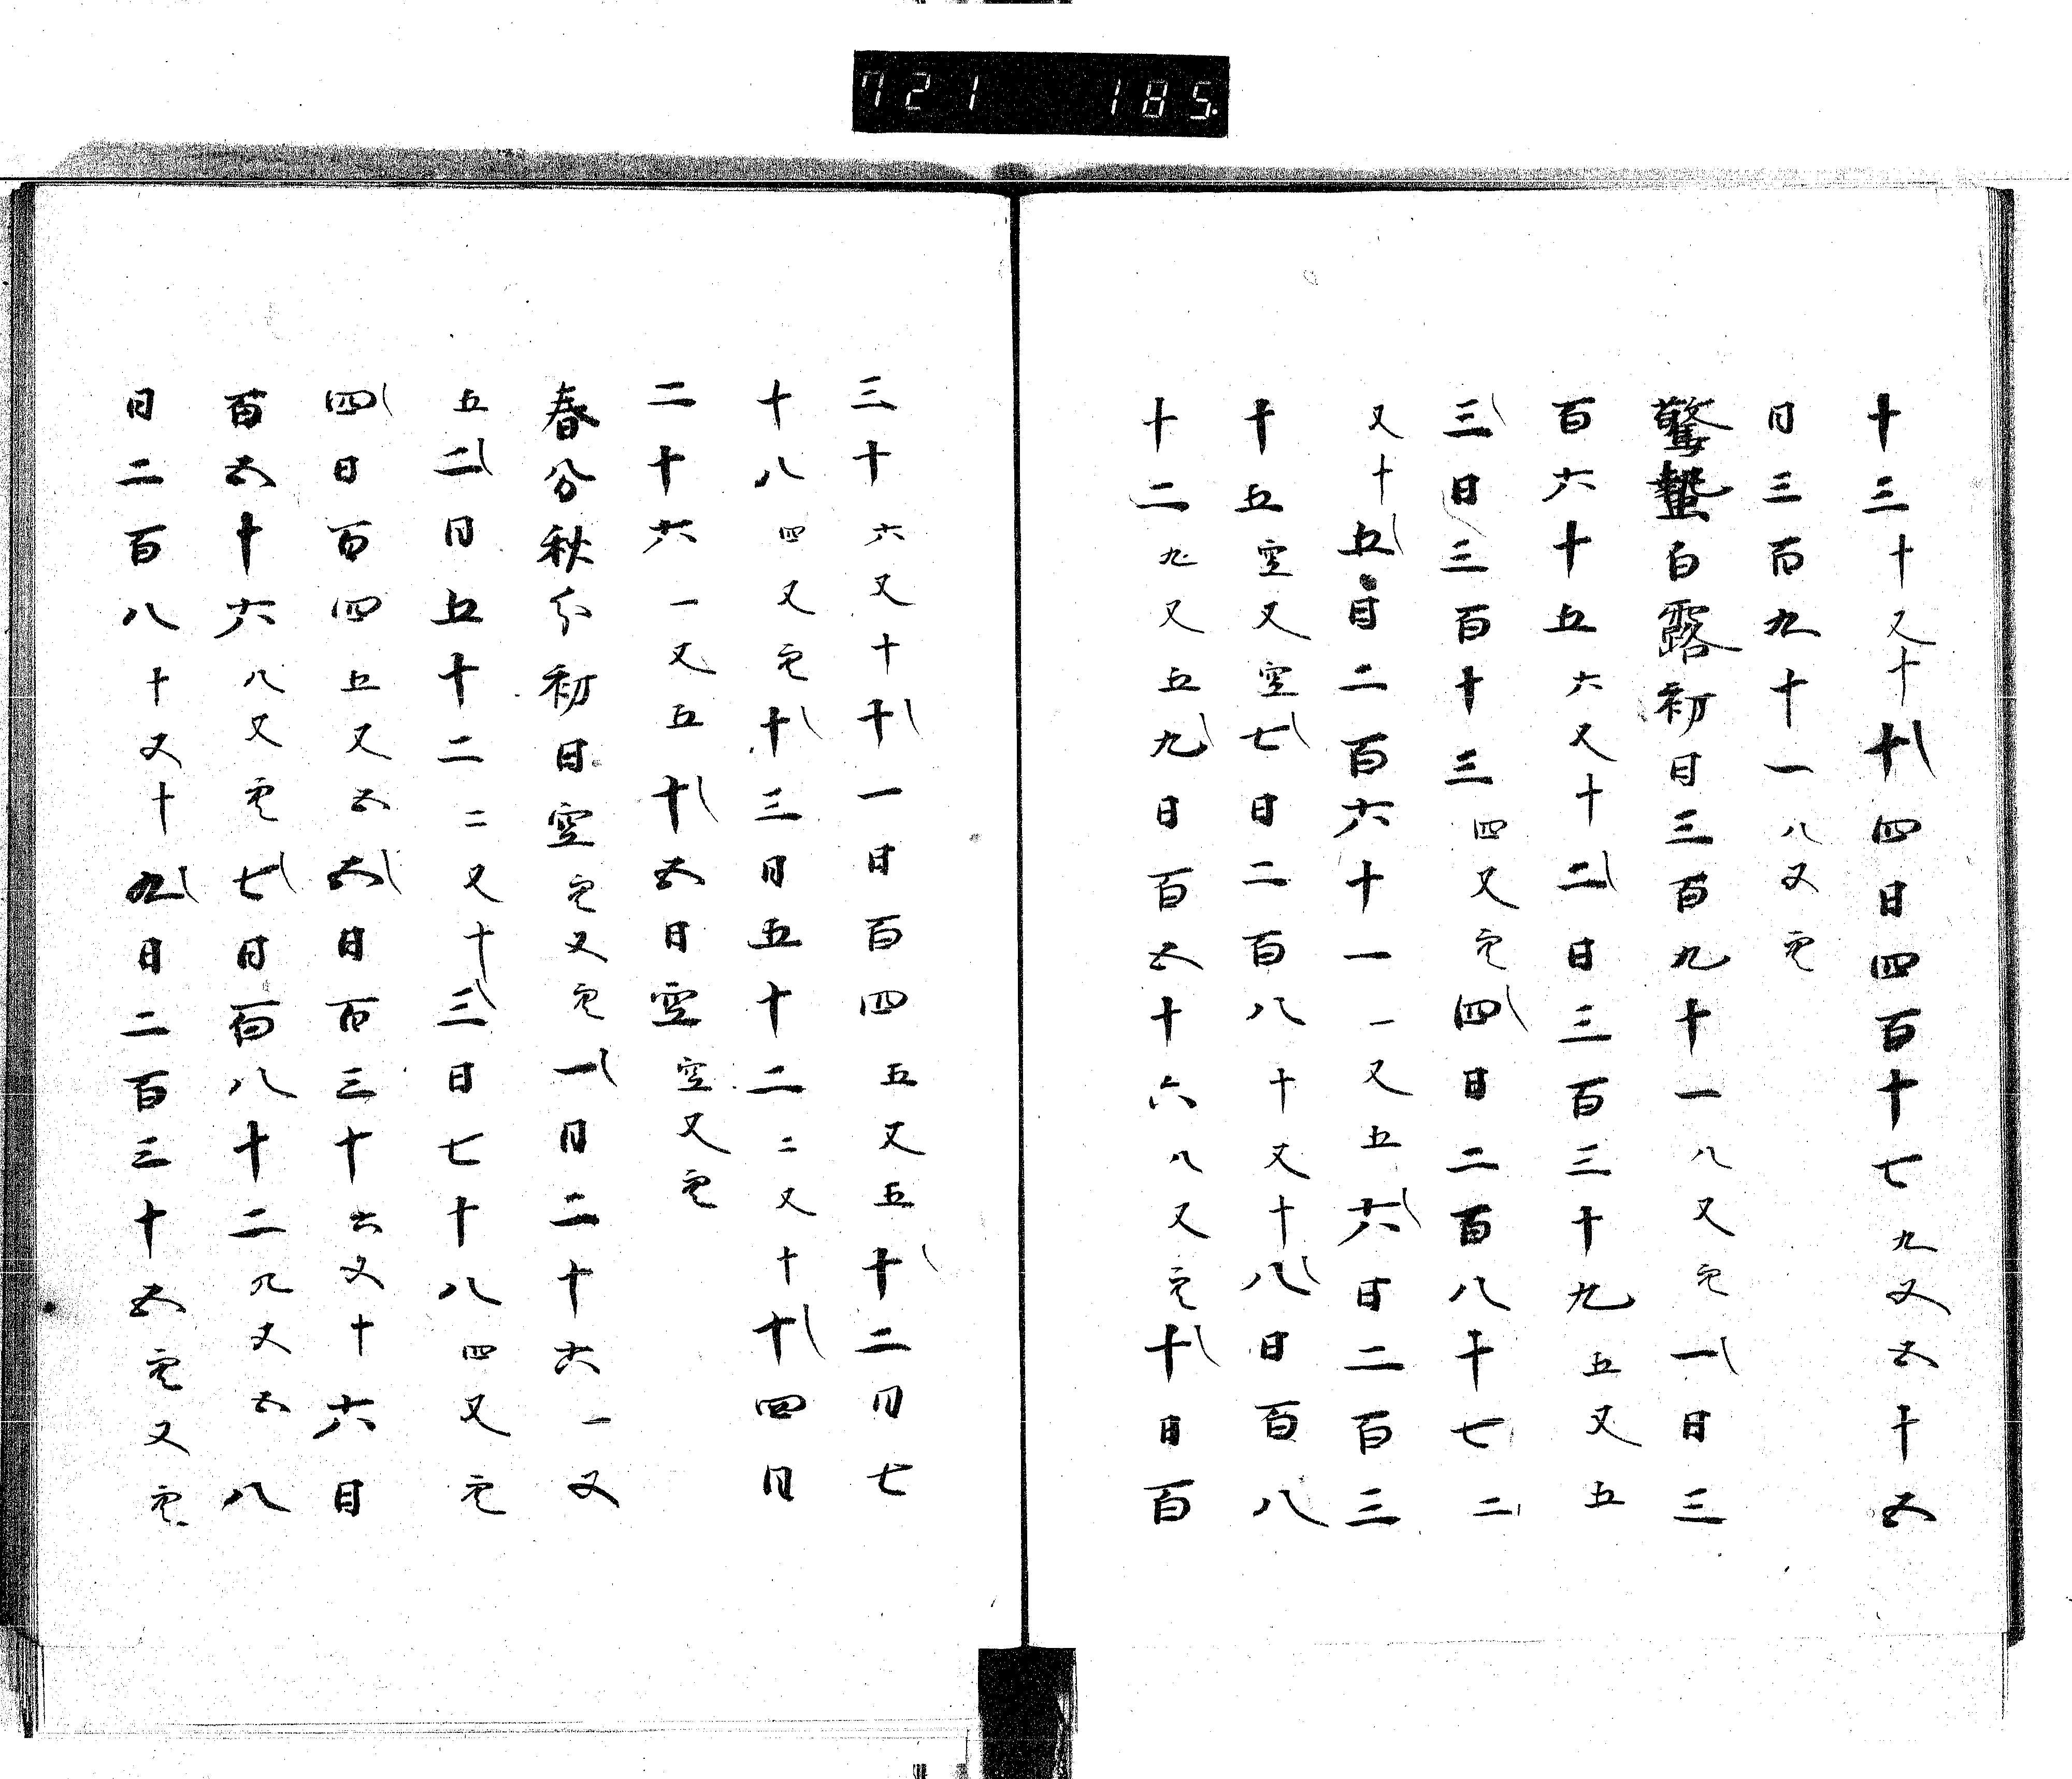 721 185.
十三十又十十四日四百十七九又五十五
日三百九十一八又空
驚蟄白露初日三百九十一八又空一日三
百六十五六又十二日三百三十九五又五
三日三百十三四又空四日二百八十七二
又十五日二百六十一一又五六日二百三
十五空又空七日二百八十又十八日百八
十二九又五九日百五十六八又空十日百
三十六又十十一日百四五又五十二日七
十八四又空十三日五十二二又十十四日
二十六一又五十五日空空又空
春分秋分初日空空又空一日二十六一又
五二日五十二二又十三日七十八四又空
四日百四五又五五日百三十六又十六日
百五十六八又空七日百八十二九又五八
日二百八十又十九日二百三十五空又空